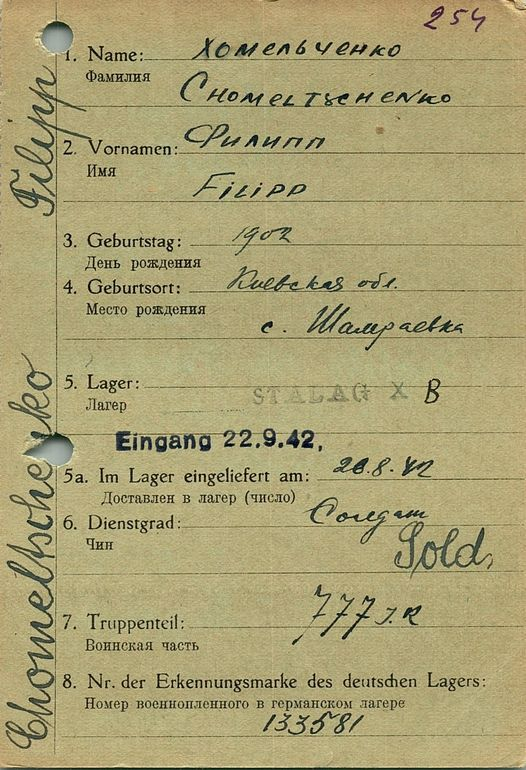 254
1. Name: Хомельченко
Фамилия
Chomeltschenko
2. Vornamen: Филипп
Имя
Filipp
3. Geburtstag: 1902
День рождения
4. Geburtsort: Киевская обл.
Место рождения
с. Шамраевка
5. Lager: STALAG X B
Лагер
Eingang 22.9.42,
5a. Im Lager eingeliefert am: 28.8.42
Доставлен в лагер (число)
6. Dienstgrad: Солдат
Чин
Sold,
7. Truppenteil: 777 J.R
Воинская часть
8. Nr. der Erkennungsmarke des deutschen Lagers:
Номер военнопленного в германском лагере
133581
Chomeltschenko Filipp